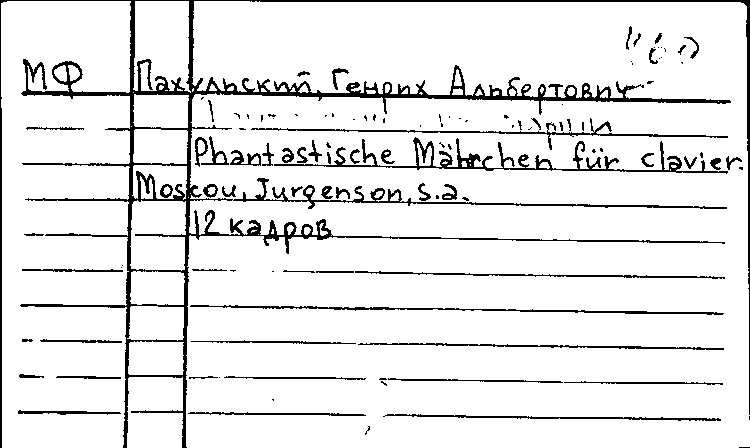 МФ Пахульский, Генрих Альбертович
Phantastische Mährchen für clavier.
Moscou, Jurgenson, s.a.
12 кадров